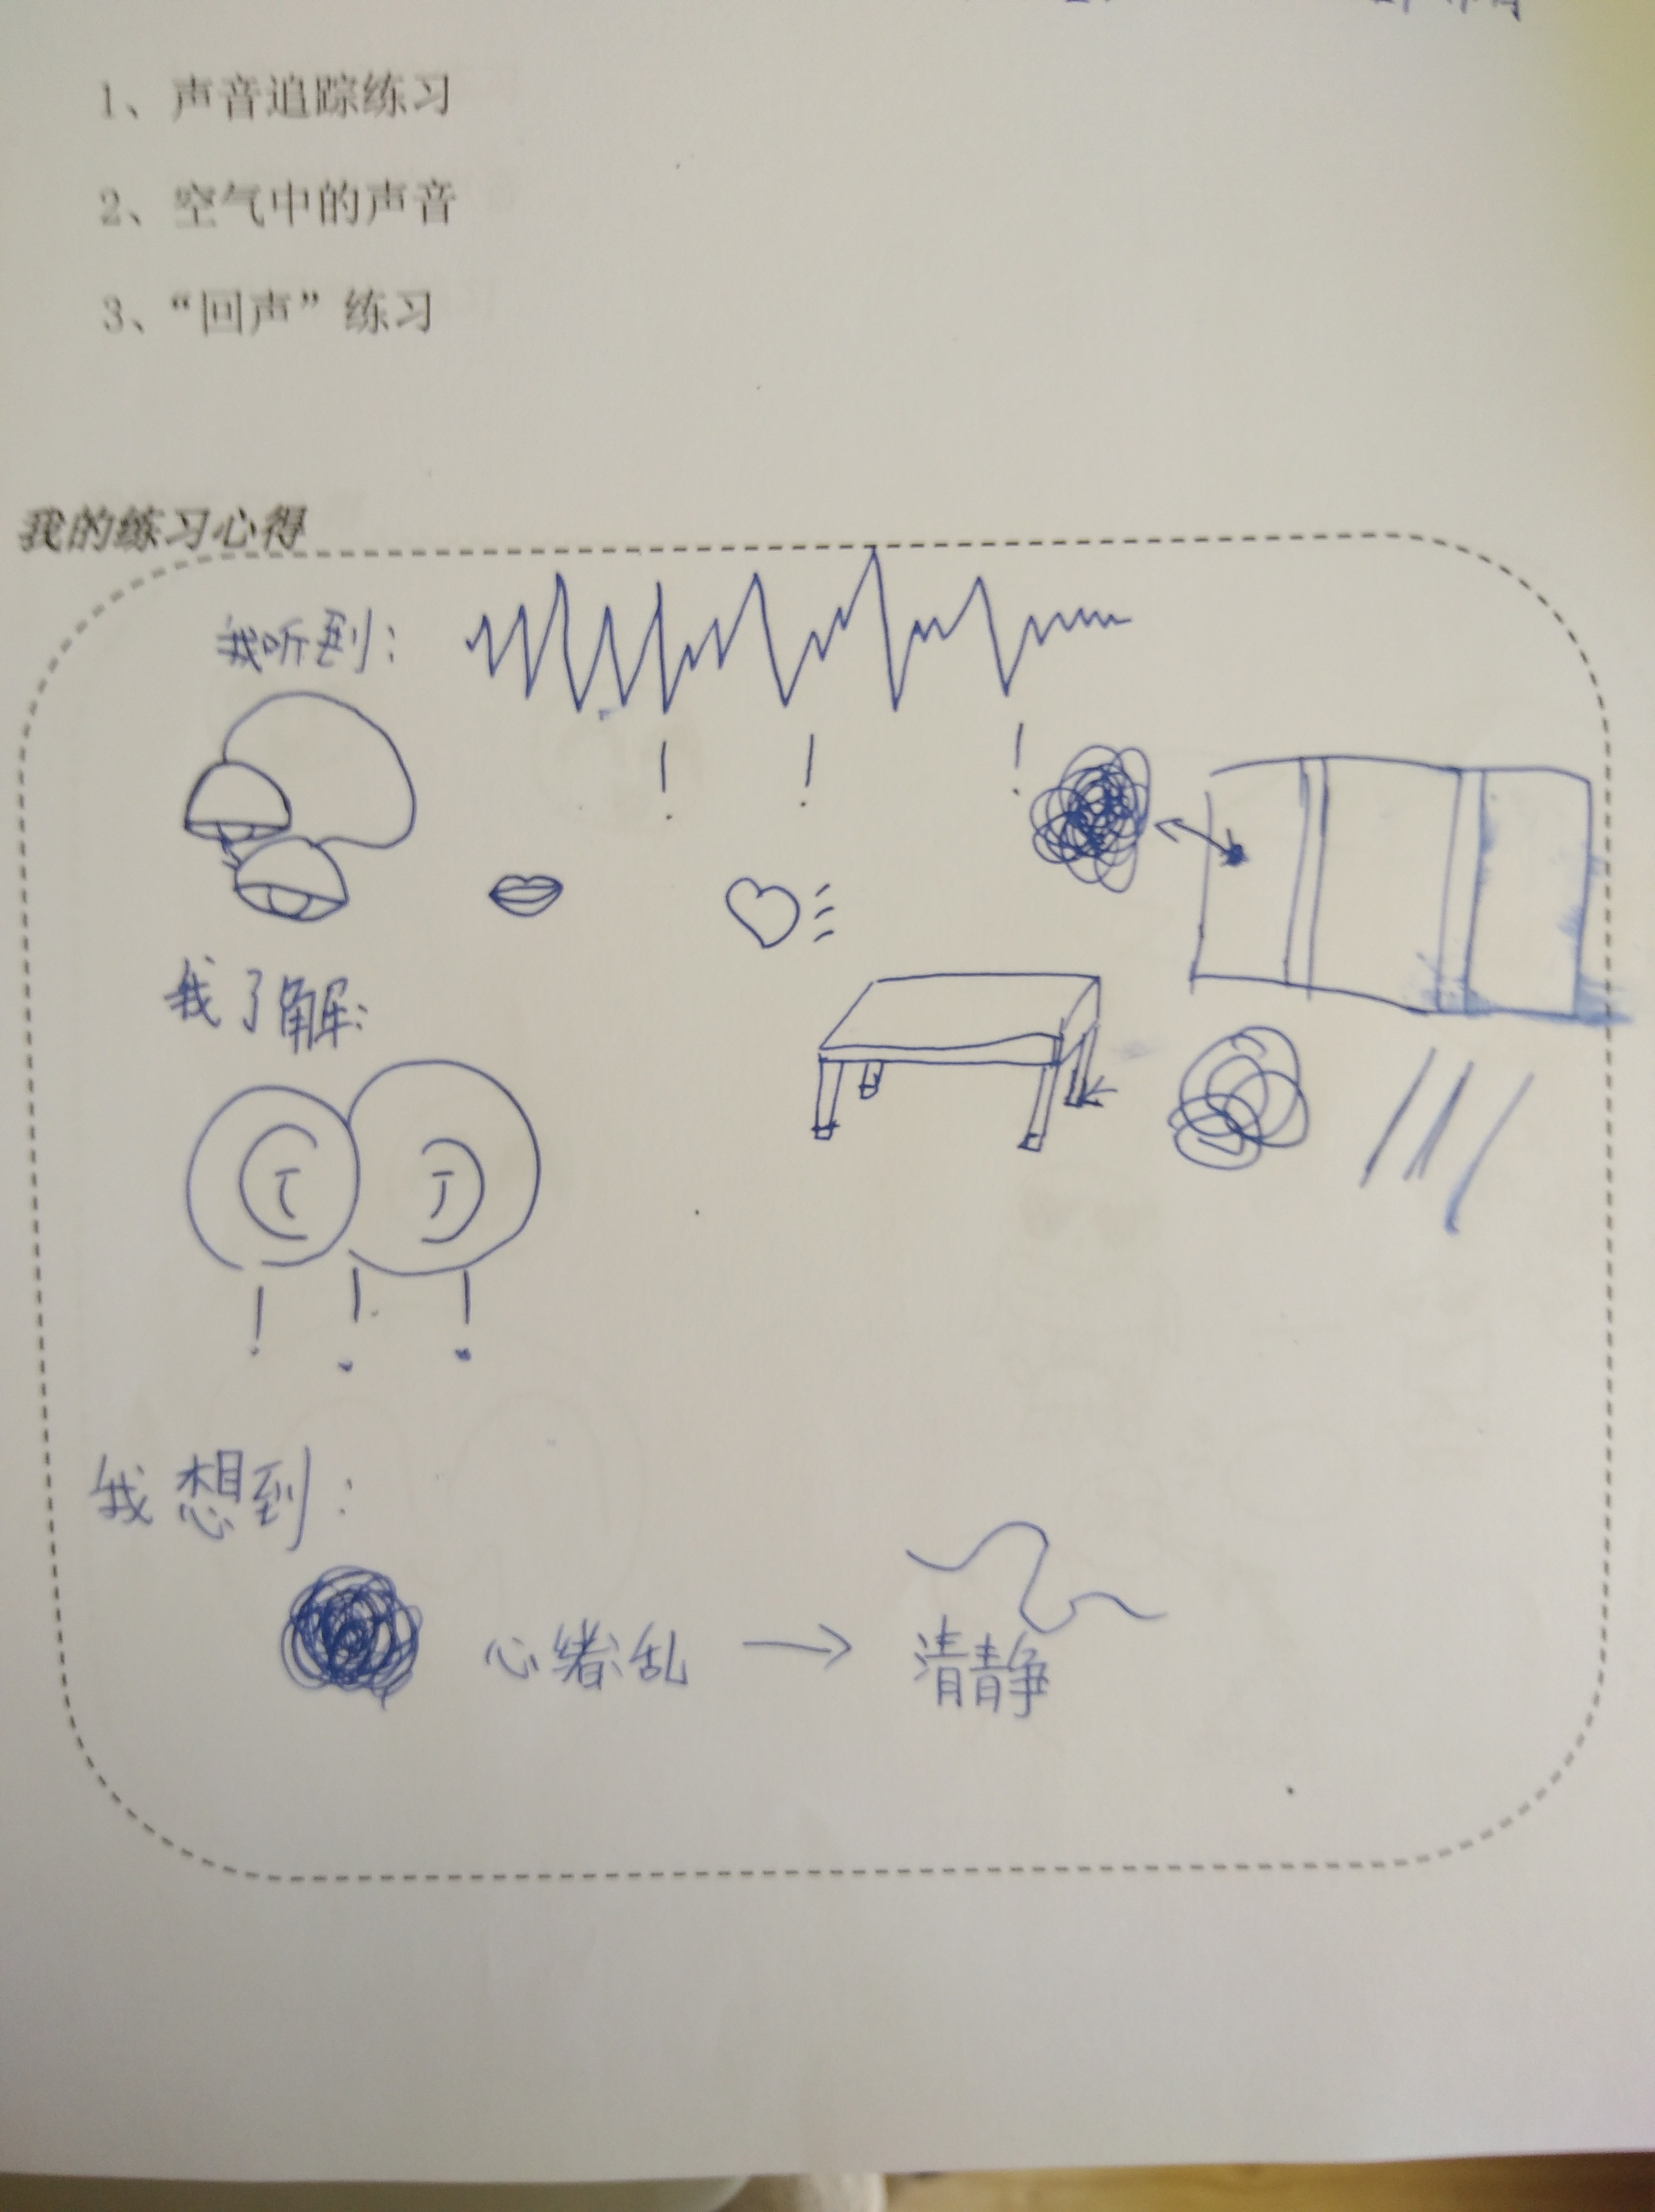 1、声音追踪练习
2、空气中的声音
3、“回声”练习
我的练习心得
我听到：
！ ！ ！
我了解：
！ ！ ！
我想到：
心绪乱 → 清静